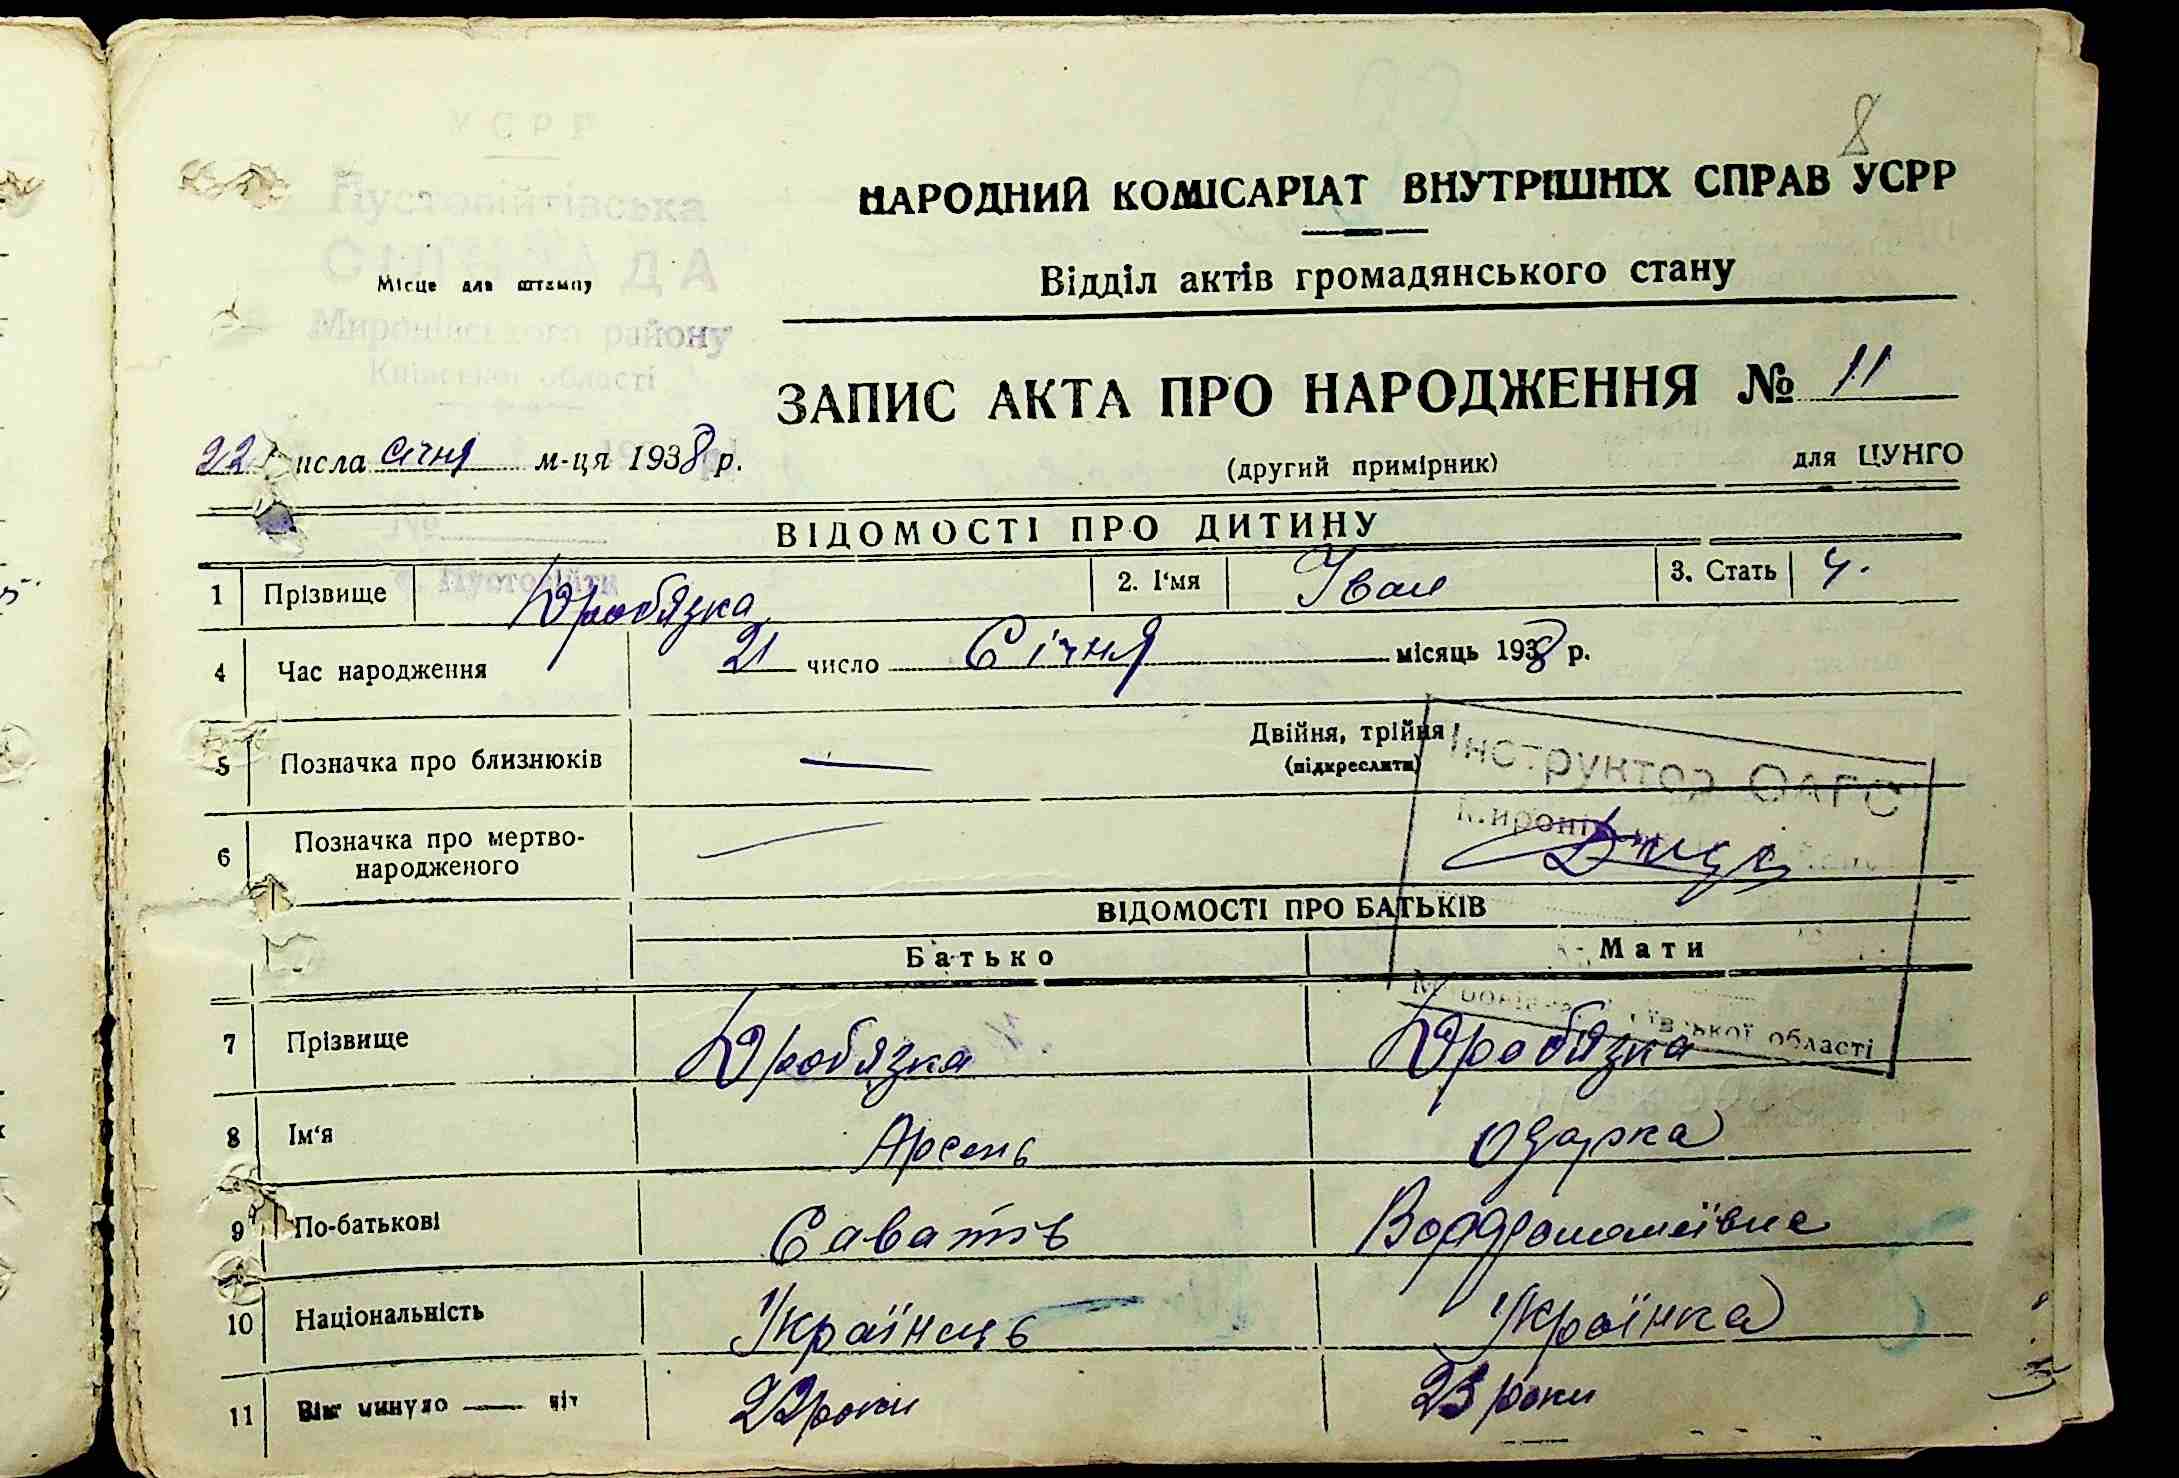 8
УСРР
НАРОДНИЙ КОМІСАРІАТ ВНУТРІШНІХ СПРАВ УСРР
Пустовійтівська
СІЛЬРАДА
Місце для штампу
Відділ актів громадянського стану
Миронівського району
Київської області
ЗАПИС АКТА ПРО НАРОДЖЕННЯ № 11
22 числа січня м-ця 1938 р.
(другий примірник) для ЦУНГО
№
ВІДОМОСТІ ПРО ДИТИНУ
с. Пустовійти
1 Прізвище Дробязка 2. І'мя Іван 3. Стать ч.
4 Час народження 21 число Січня місяць 1938 р.
5 Позначка про близнюків — Двійня, трійня
(підкреслити)
Інструктор ОАГС
6 Позначка про мертво-
народженого —
ВІДОМОСТІ ПРО БАТЬКІВ
Батько Мати
київської області
7 Прізвище Дробязка Дробязка
8 Ім'я Арсень Одарка
9 По-батькові
10 Національність Українець Українка
11 Вік минуло — літ 22 роки 23 роки